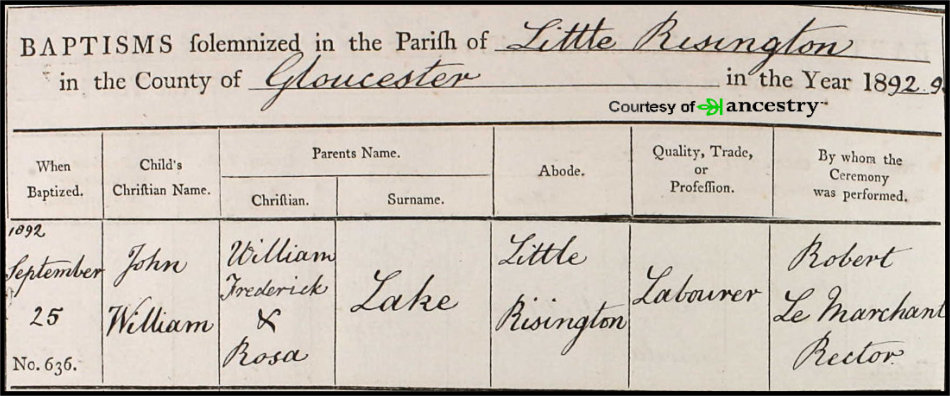 BAPTISMS ſolemnized in the Pariſh of Little Risington
in the County of Gloucester in the Year 1892.9
Courtesy of ancestry
When Baptized.
Child's Chriſtian Name.
Parents Name.
Chriſtian.
Surname.
Abode.
Quality, Trade, or Profeſſion.
By whom the Ceremony was performed.
1892
September
25
No. 636.
John
William
William
Frederick
&
Rosa
Lake
Little
Risington
Labourer
Robert
Le Marchant
Rector.